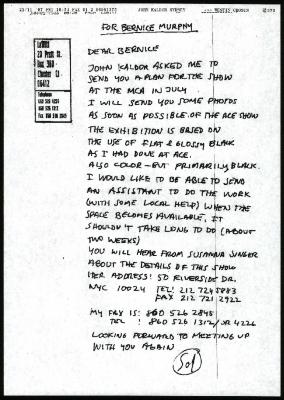 FOR BERNICE MURPHY
LeWitt
20 Pratt St.
Box 360
Chester Ct
06412
Telephone
DEAR BERNICE
JOHN KALDOR ASKED ME TO
SEND YOU A PLAN FOR THE SHOW
AT THE MCA IN JULY.
I WILL SEND YOU SOME PHOTOS
AS SOON AS POSSIBLE. OF THE ACE SHOW
THE EXHIBITION IS BASED ON
THE USE OF FLAT & GLOSSY BLACK
AS I HAD DONE AT ACE.
ALSO COLOR – BUT PRIMARILY BLACK.
I WOULD LIKE TO BE ABLE TO SEND
AN ASSISTANT TO DO THE WORK
(WITH SOME LOCAL HELP) WHEN THE
SPACE BECOMES AVAILABLE. IT
SHOULDN'T TAKE LONG TO DO (ABOUT
TWO WEEKS)
YOU WILL HEAR FROM SUSANNA SINGER
ABOUT THE DETAILS OF THIS SHOW
HER ADDRESS: 50 RIVERSIDE DR.
NYC 10024 TEL: 212 724 5883
FAX 212 721 2922
MY FAX IS: 860 526 2845
TEL: 860 526 1312/OR 4226
LOOKING FORWARD TO MEETING UP
WITH YOU AGAIN
Sol